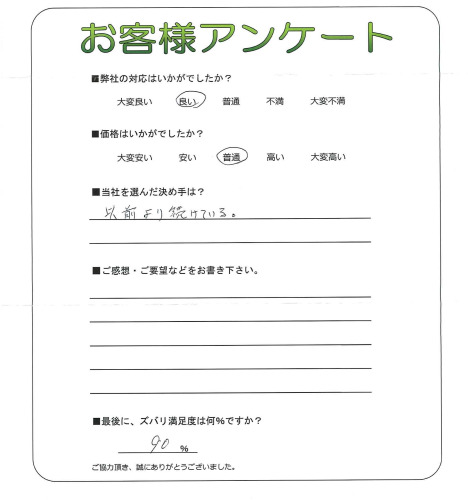 お客様アンケート
■弊社の対応はいかがでしたか？
大変良い 良い 普通 不満 大変不満
■価格はいかがでしたか？
大変安い 安い 普通 高い 大変高い
■当社を選んだ決め手は？
以前より続けている。
■ご感想・ご要望などをお書き下さい。
■最後に、ズバリ満足度は何%ですか？
90 %
ご協力頂き、誠にありがとうございました。